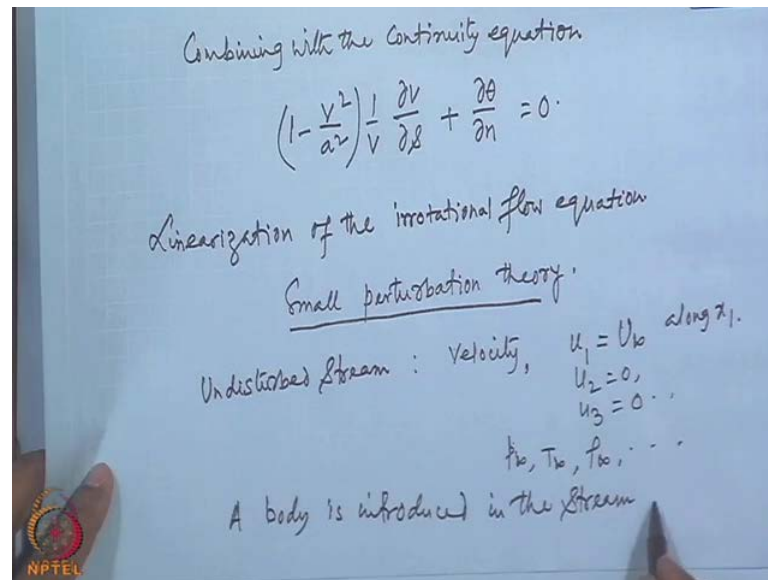 Combining with the Continuity equation
(1 - V²/a²) 1/V ∂V/∂s + ∂θ/∂n = 0.
Linearization of the irrotational flow equation
Small perturbation theory.
Undisturbed Stream : Velocity, u₁ = U∞ along x₁.
u₂ = 0,
u₃ = 0 . .
p∞, T∞, ρ∞, . . .
A body is introduced in the Stream
NPTEL